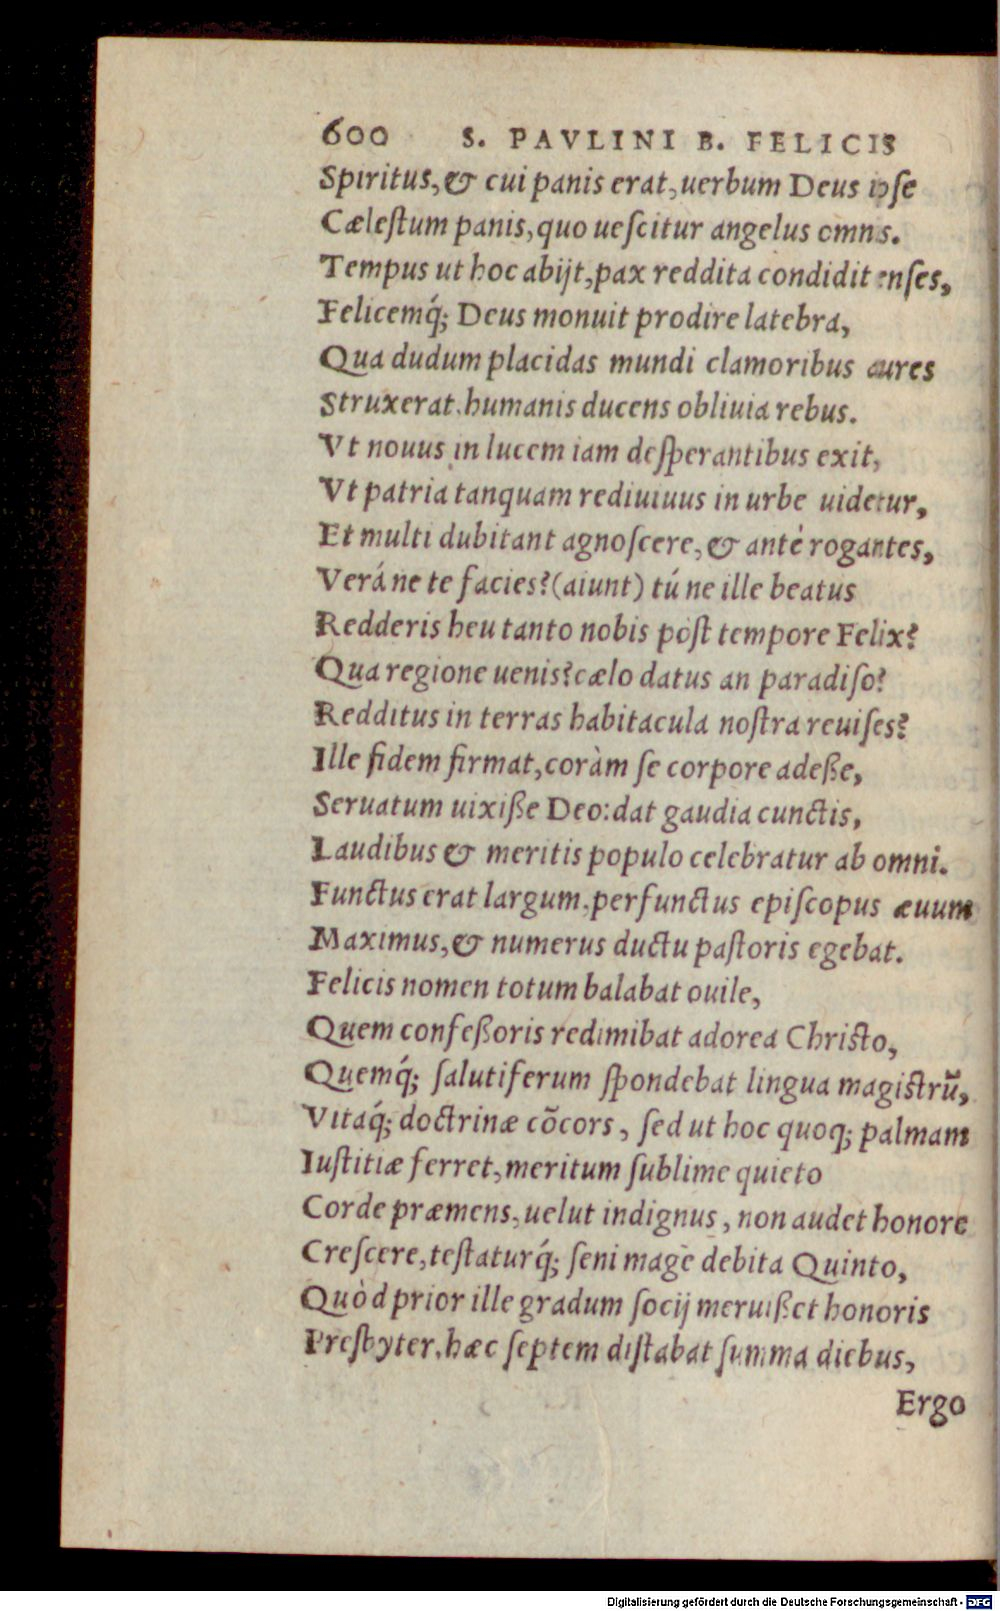 600 S. PAVLINI B. FELICIS
Spiritus, & cui panis erat, uerbum Deus ipse
Cælestum panis, quo uescitur angelus omnis.
Tempus ut hoc abijt, pax reddita condidit enses,
Felicemq́; Deus monuit prodire latebra,
Qua dudum placidas mundi clamoribus aures
Struxerat, humanis ducens obliuia rebus.
Vt nouus in lucem iam desperantibus exit,
Vt patria tanquam rediuiuus in urbe uidetur,
Et multi dubitant agnoscere, & antè rogantes,
Verá ne te facies? (aiunt) tú ne ille beatus
Redderis heu tanto nobis pòst tempore Felix?
Qua regione uenis? cælo datus an paradiso?
Redditus in terras habitacula nostra reuises?
Ille fidem firmat, coràm se corpore adeße,
Seruatum uixiße Deo: dat gaudia cunctis,
Laudibus & meritis populo celebratur ab omni.
Functus erat largum, perfunctus episcopus æuum
Maximus, & numerus ductu pastoris egebat.
Felicis nomen totum balabat ouile,
Quem confeßoris redimibat adorea Christo,
Quemq́; salutiferum spondebat lingua magistrũ,
Vitaq́; doctrinæ cõcors, sed ut hoc quoq; palmam
Iustitiæ ferret, meritum sublime quieto
Corde præmens, uelut indignus, non audet honore
Crescere, testaturq́; seni magè debita Quinto,
Quòd prior ille gradum socij meruißet honoris
Presbyter, hæc septem distabat summa diebus,
Ergo
Digitalisierung gefördert durch die Deutsche Forschungsgemeinschaft - DFG